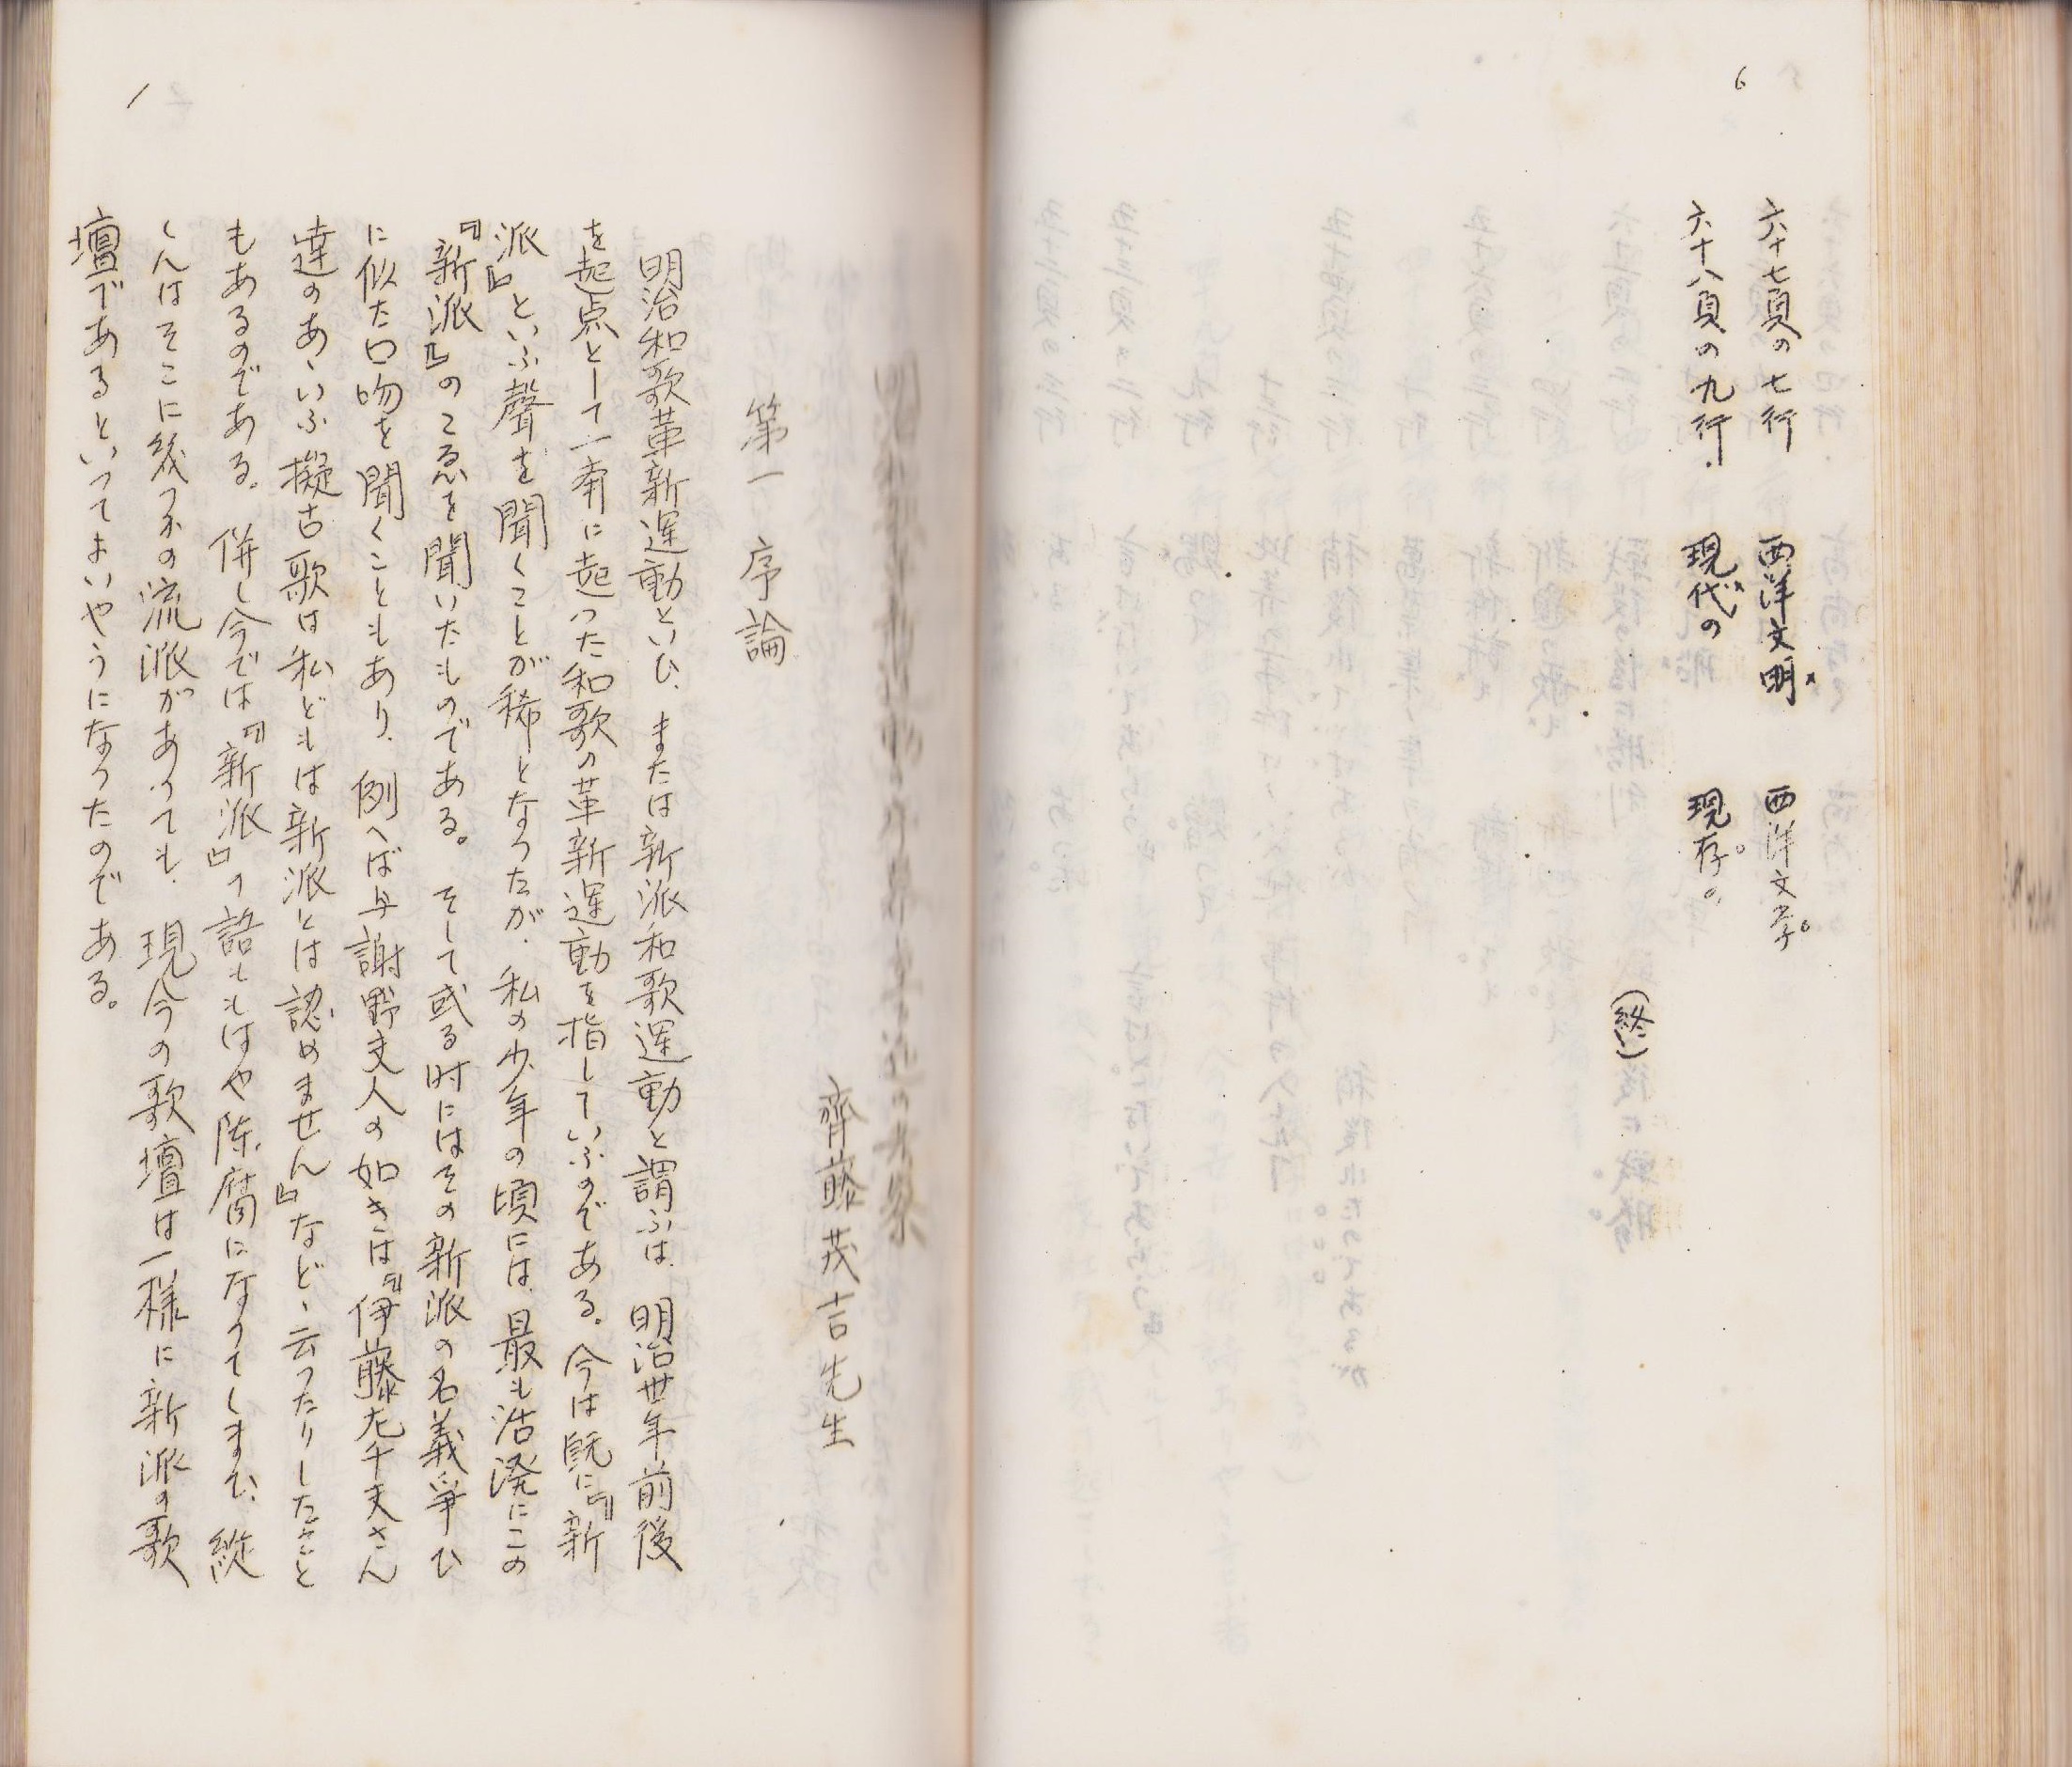 6
六十七頁の七行 西洋文明 西洋文学。
六十八頁の九行. 現代の 現存。
(終)
齊藤茂吉先生
第一 序論
明治和歌革新運動といひ、または新派和歌運動と謂ふは、明治丗年前後
を起点として一斉に起つた和歌の革新運動を指していふのである。今は既に『新
派』といふ聲を聞くことが稀となつたが、私の少年の頃には、最も活発にこの
『新派』のこゑを聞いたものである。そして或る時にはその新派の名義爭ひ
に似た口吻を聞くこともあり、例へば与謝野夫人の如きは『伊藤左千夫さん
達のあゝいふ擬古歌は私どもは新派とは認めません』などゝ云つたりしたこと
もあるのである。併し今では『新派』の語ももはや陳腐になつてしまひ、縦
しんばそこに幾つかの流派があつても、現今の歌壇は一様に新派の歌
壇であるといつてよいやうになつたのである。
1